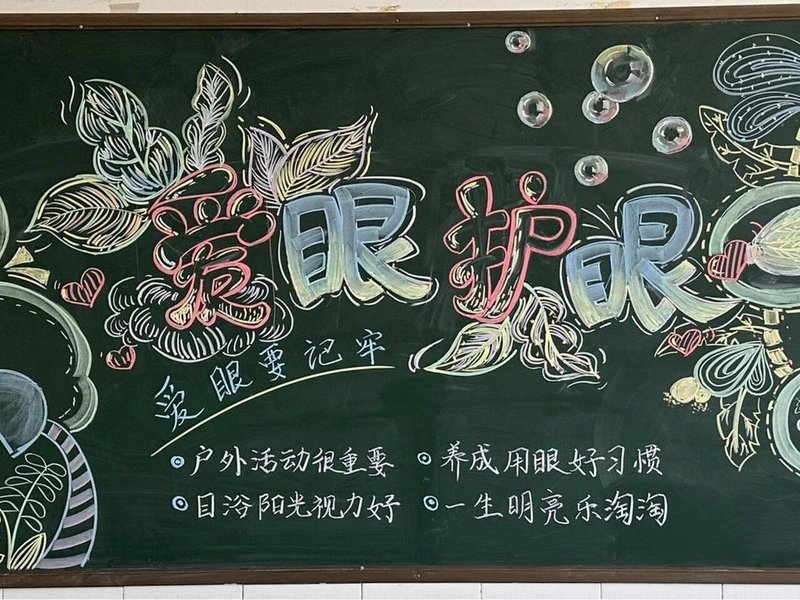 爱眼护眼
爱眼要记牢
户外活动很重要
目浴阳光视力好
养成用眼好习惯
一生明亮乐淘淘